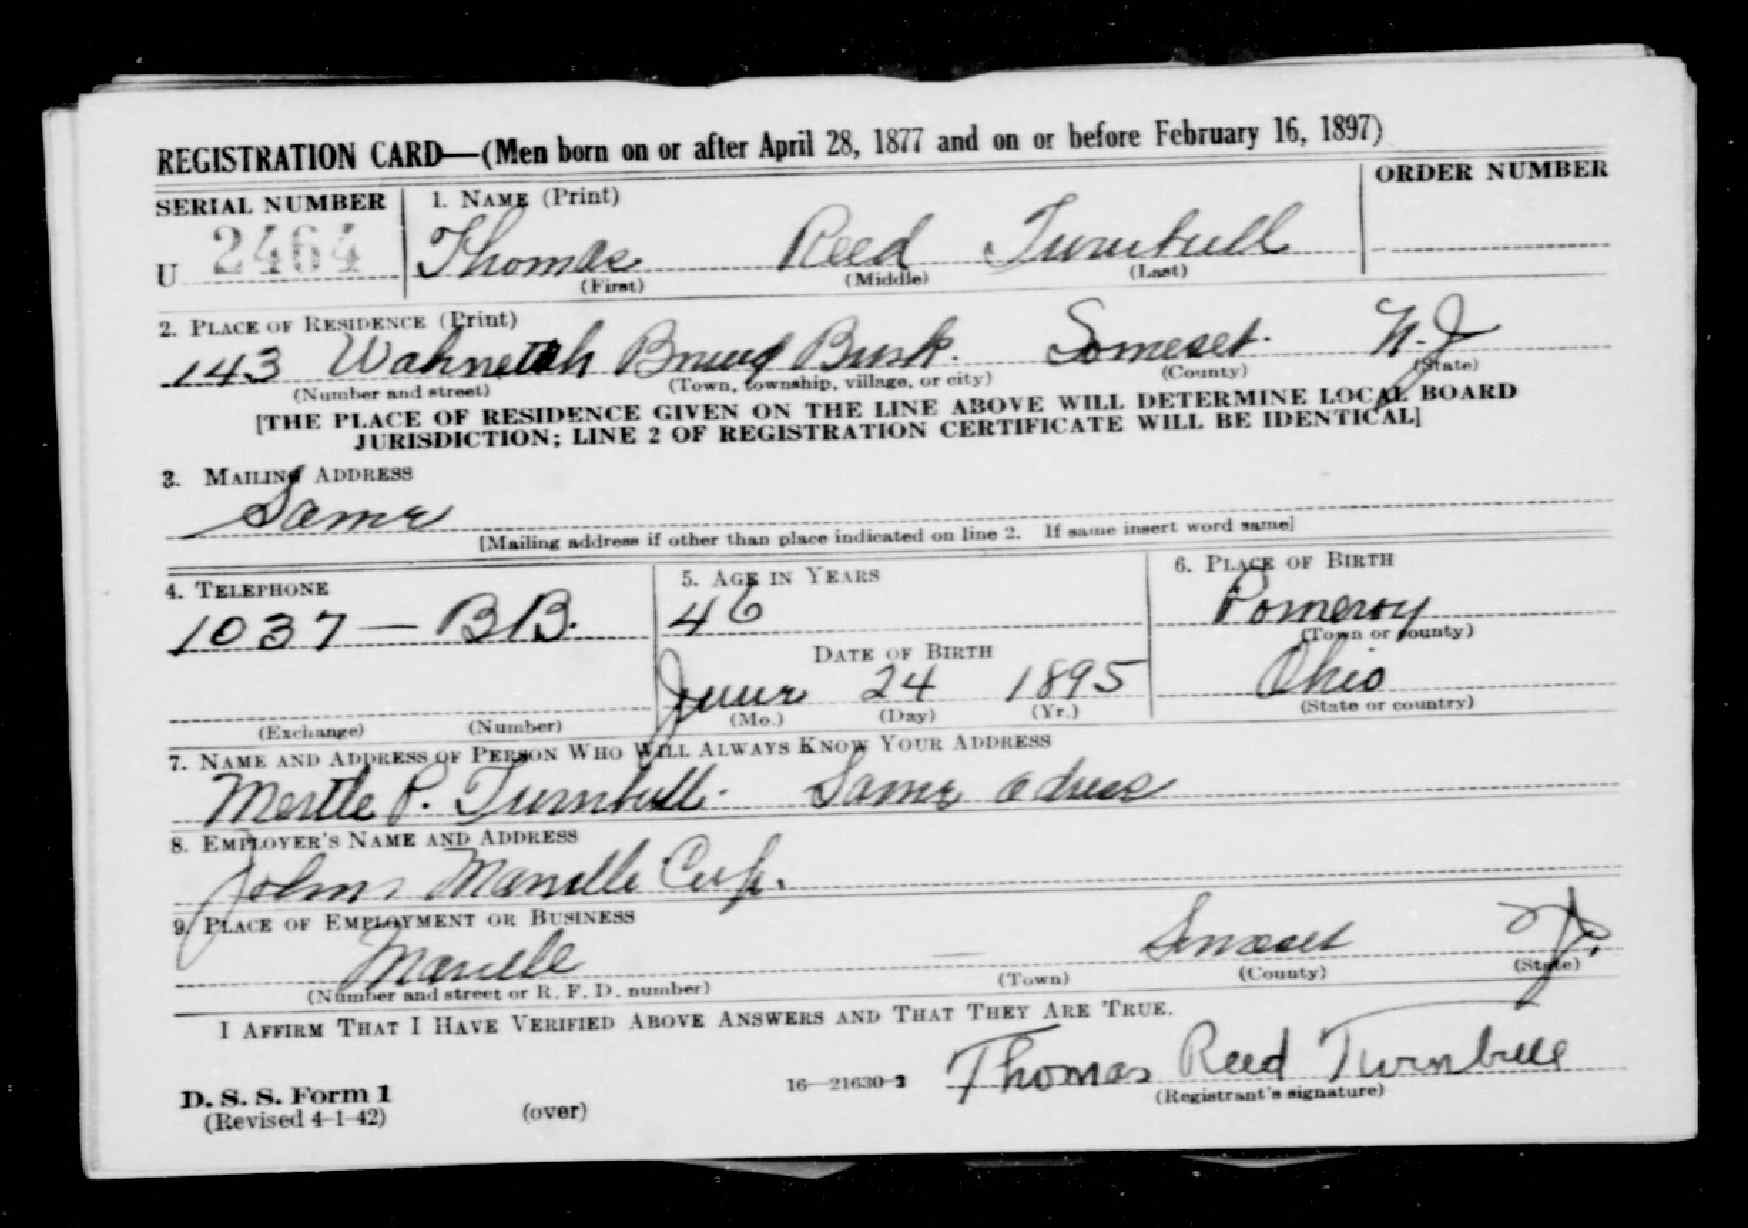 REGISTRATION CARD—(Men born on or after April 28, 1877 and on or before February 16, 1897)
SERIAL NUMBER 1. NAME (Print) ORDER NUMBER
U 2464 Thomas Reed Turnbull
(First) (Middle) (Last)
2. PLACE OF RESIDENCE (Print)
143 Somerset. N.J
(Number and street) (Town, township, village, or city) (County) (State)
[THE PLACE OF RESIDENCE GIVEN ON THE LINE ABOVE WILL DETERMINE LOCAL BOARD
JURISDICTION; LINE 2 OF REGISTRATION CERTIFICATE WILL BE IDENTICAL]
3. MAILING ADDRESS
Same
[Mailing address if other than place indicated on line 2. If same insert word same]
4. TELEPHONE 5. AGE IN YEARS 6. PLACE OF BIRTH
1037 — BB. 46 Pomeroy
(Town or county)
DATE OF BIRTH
June 24 1895 Ohio
(Exchange) (Number) (Mo.) (Day) (Yr.) (State or country)
7. NAME AND ADDRESS OF PERSON WHO WILL ALWAYS KNOW YOUR ADDRESS
P. Turnbull. Same adress
8. EMPLOYER'S NAME AND ADDRESS
Johns Manville Corp.
9. PLACE OF EMPLOYMENT OR BUSINESS
Manville — Somerset N.J.
(Number and street or R. F. D. number) (Town) (County) (State)
I AFFIRM THAT I HAVE VERIFIED ABOVE ANSWERS AND THAT THEY ARE TRUE.
Thomas Reed Turnbull
D. S. S. Form 1 16—21630-2 (Registrant's signature)
(Revised 4-1-42) (over)